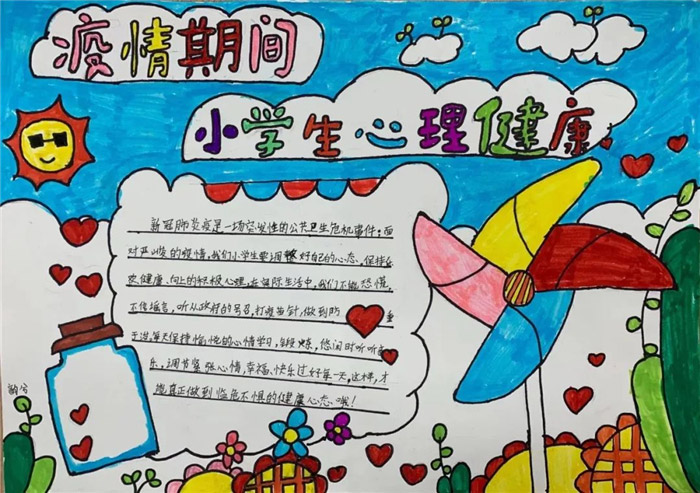 疫情期间
小学生心理健康
新冠肺炎疫是一场突发性的公共卫生危机事件;面
对严峻的疫情,我们小学生要调整好自己的心态,保持
健康、向上的积极心理,在实际生活中,我们不能恐慌,
不传谣言,听从政府的号召,打疫苗针,做到防
于治,每天保持愉悦的心情学习、锻炼,悠闲时听听音
乐,调节紧张心情,幸福、快乐过好每一天,这样,才
能真正做到临危不惧的健康心态哦!